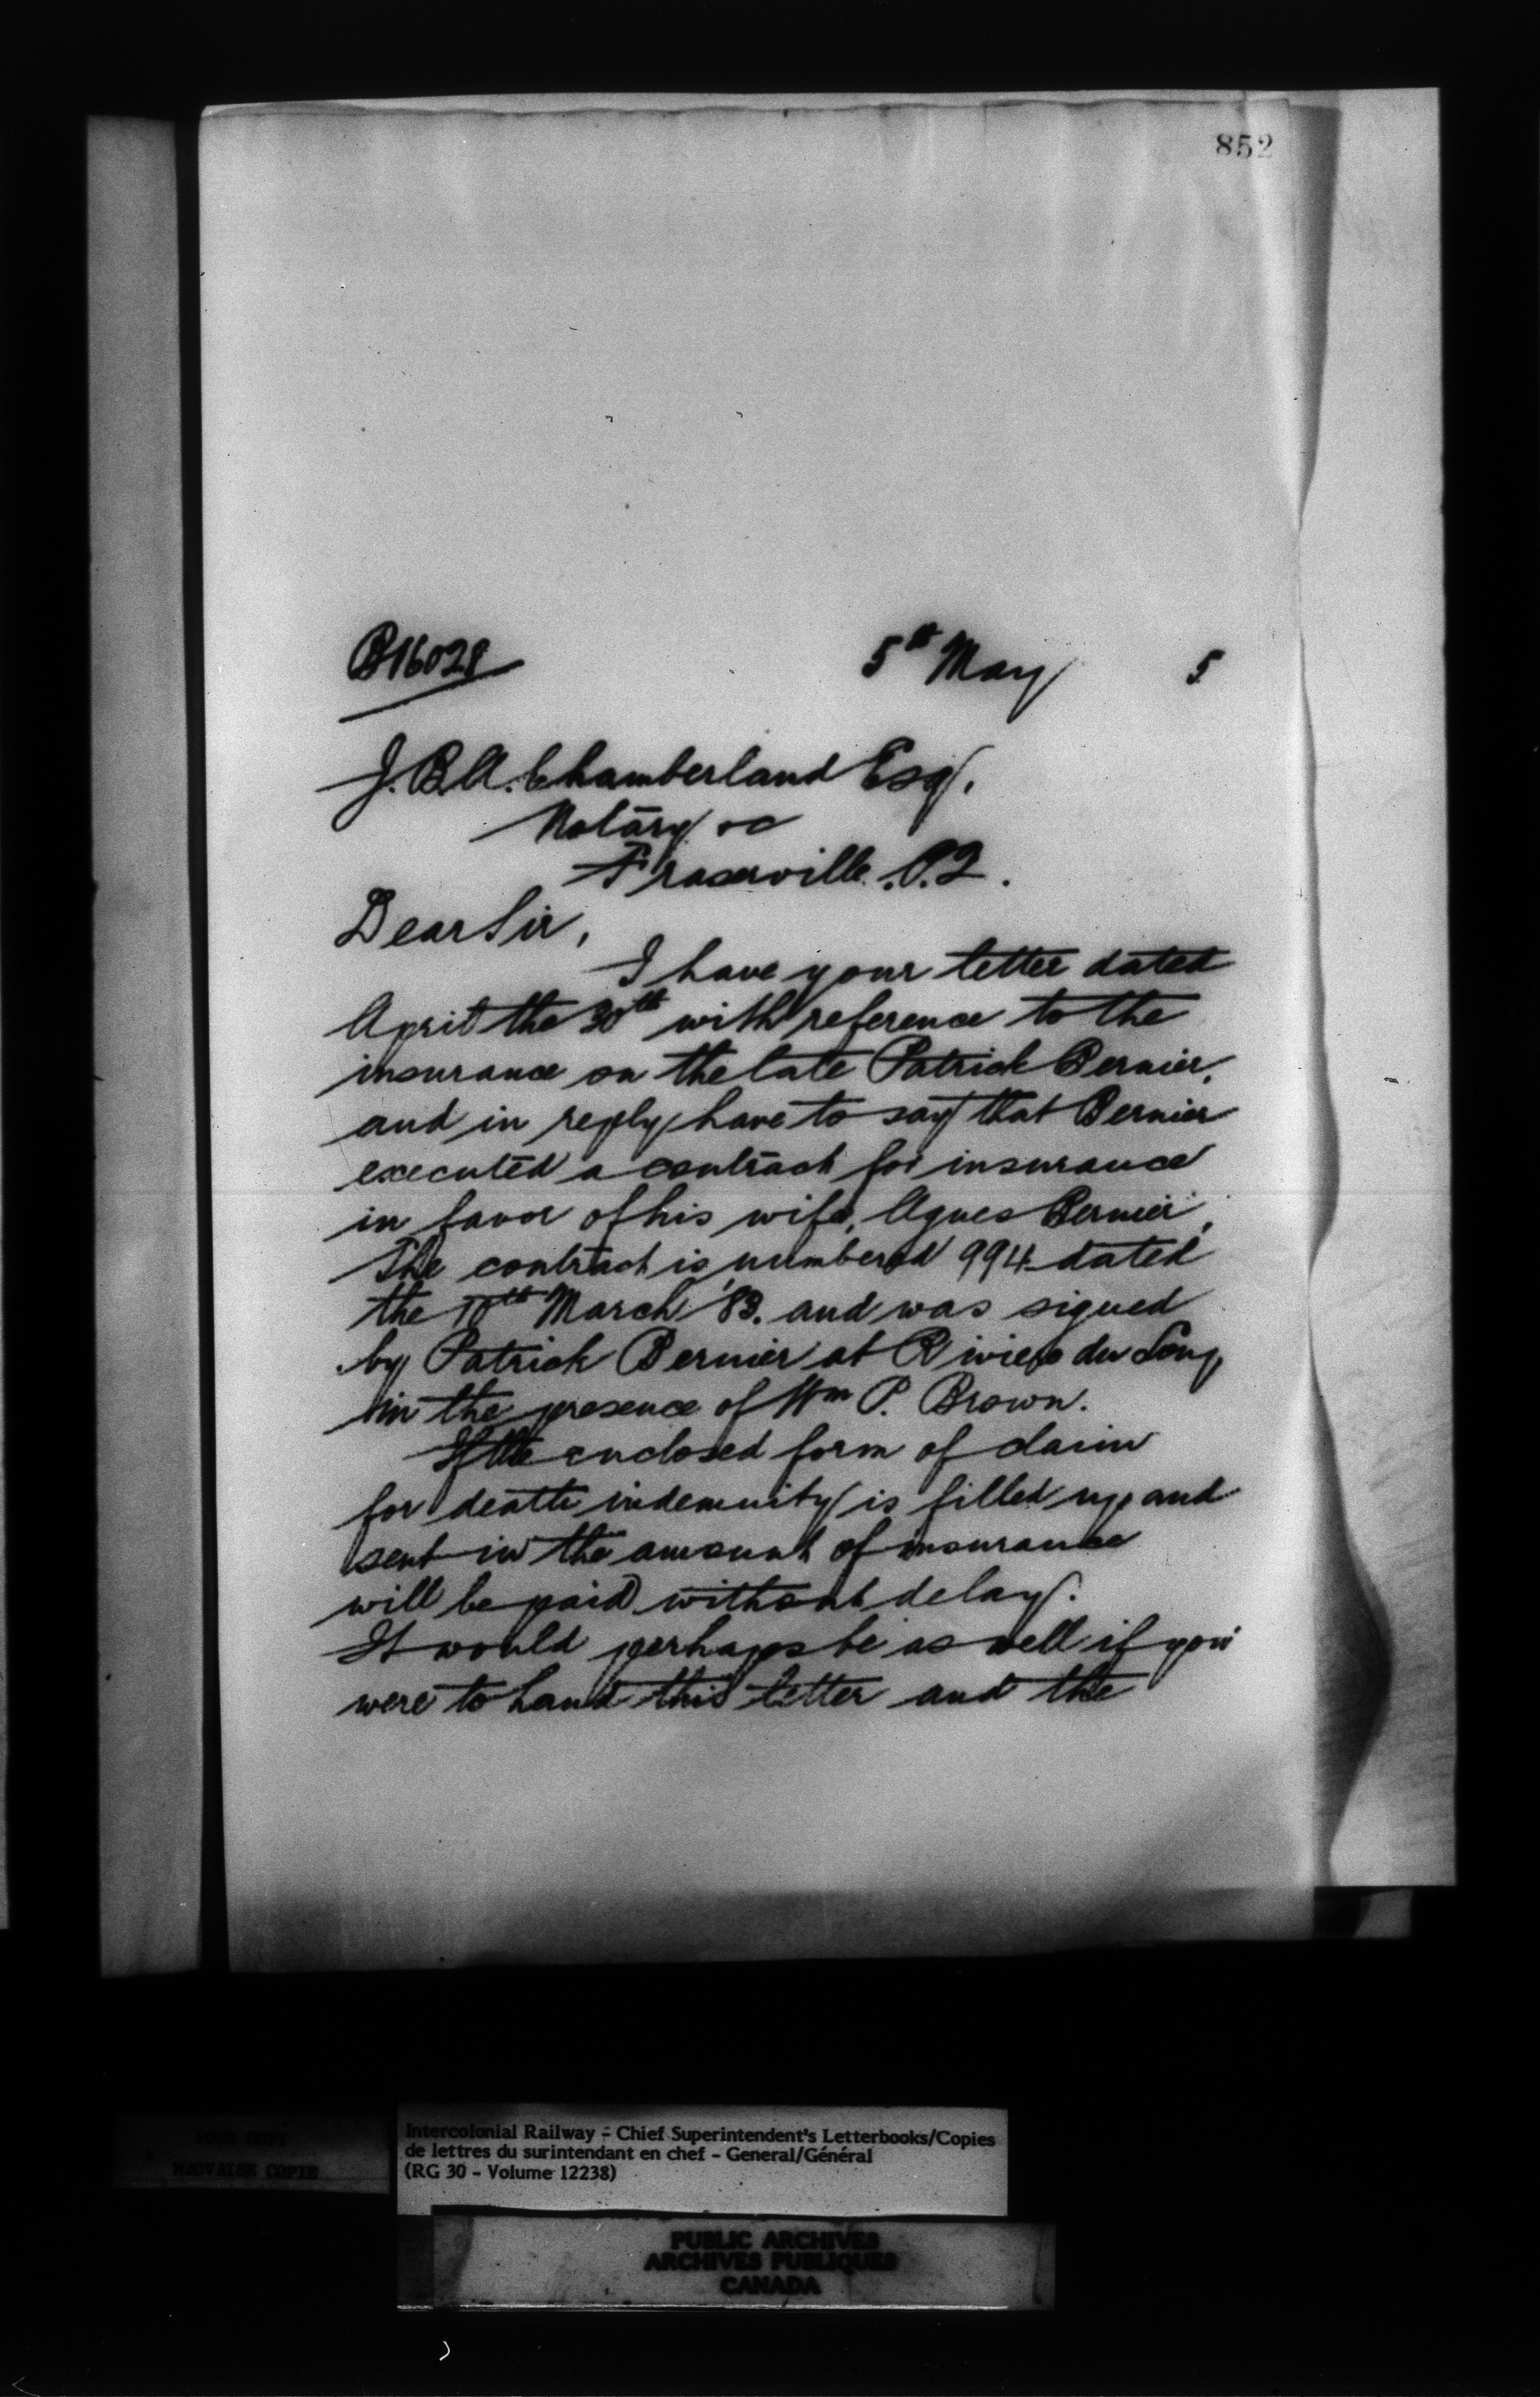 852
B16028
5th May 5
J. B. A. Chamberland Esq.
Notary &c
Fraserville. P.Q.
Dear Sir,
I have your letter dated
April the 30th with reference to the
insurance on the late Patrick Bernier,
and in reply have to say that Bernier
executed a contract for insurance
in favor of his wife, Agnes Bernier,
The contract is numbered 994 dated
the 10th March '83. and was signed
by Patrick Bernier at Riviere du Loup
in the presence of Wm P. Brown.
If the enclosed form of claim
for death indemnity is filled up and
sent in the amount of insurance
will be paid without delay.
It would perhaps be as well if you
were to hand this letter and the
POOR COPY
MAUVAISE COPIE
Intercolonial Railway - Chief Superintendent's Letterbooks/Copies
de lettres du surintendant en chef - General/Général
(RG 30 - Volume 12238)
PUBLIC ARCHIVES
ARCHIVES PUBLIQUES
CANADA